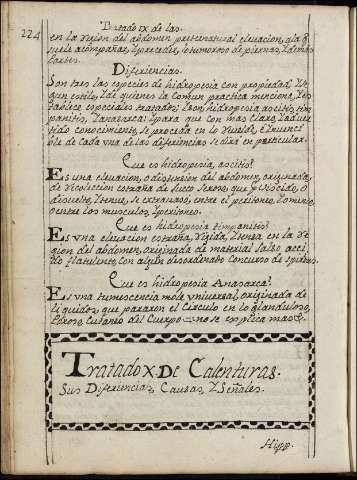 224
Tratado IX de las.
en la region del abdomen preternatural elevacion, a la q.
suele acompañar, y preceder, o tumores de piernas, y demas
partes.
Diferiencias.
Son tres las especies de hidropesia con propiedad,
aun estilo, de quienes la comun practica menciona, y
especiales tratados; y son, hidropesia ascitis, tim
panitis, y anasarca: y para que con mas claro, y adver
tido conocimiento, se proceda en lo
ble de cada una de las diferiencias se dirá en particular.
Que es hidropesia, ascitis?
Es una elevacion, o distension del abdomen, originada,
de recoleccion estraña de sueco seroso, que
disuelto, y tenue, se extravasó, entre el peritoneo, y omento,
o entre los musculos, y peritoneo.
Que es hidropesia timpanitis?
Es una elevacion estraña, rigida, y tensa en la re
gion del abdomen, originada de material salso acci
do flatulento, con algun desordenado concurso de spiritus.
Que es hidropesia Anasarca?
Es una tumescencia mole universal, originada de
liquidos, que pararon el Circulo en lo glanduloso,
Poroso, Cutaneo del Cuerpo no se explica mas
Tratado X De Calenturas.
Sus Diferiencias, Causas, Y Señales.
Hipp.